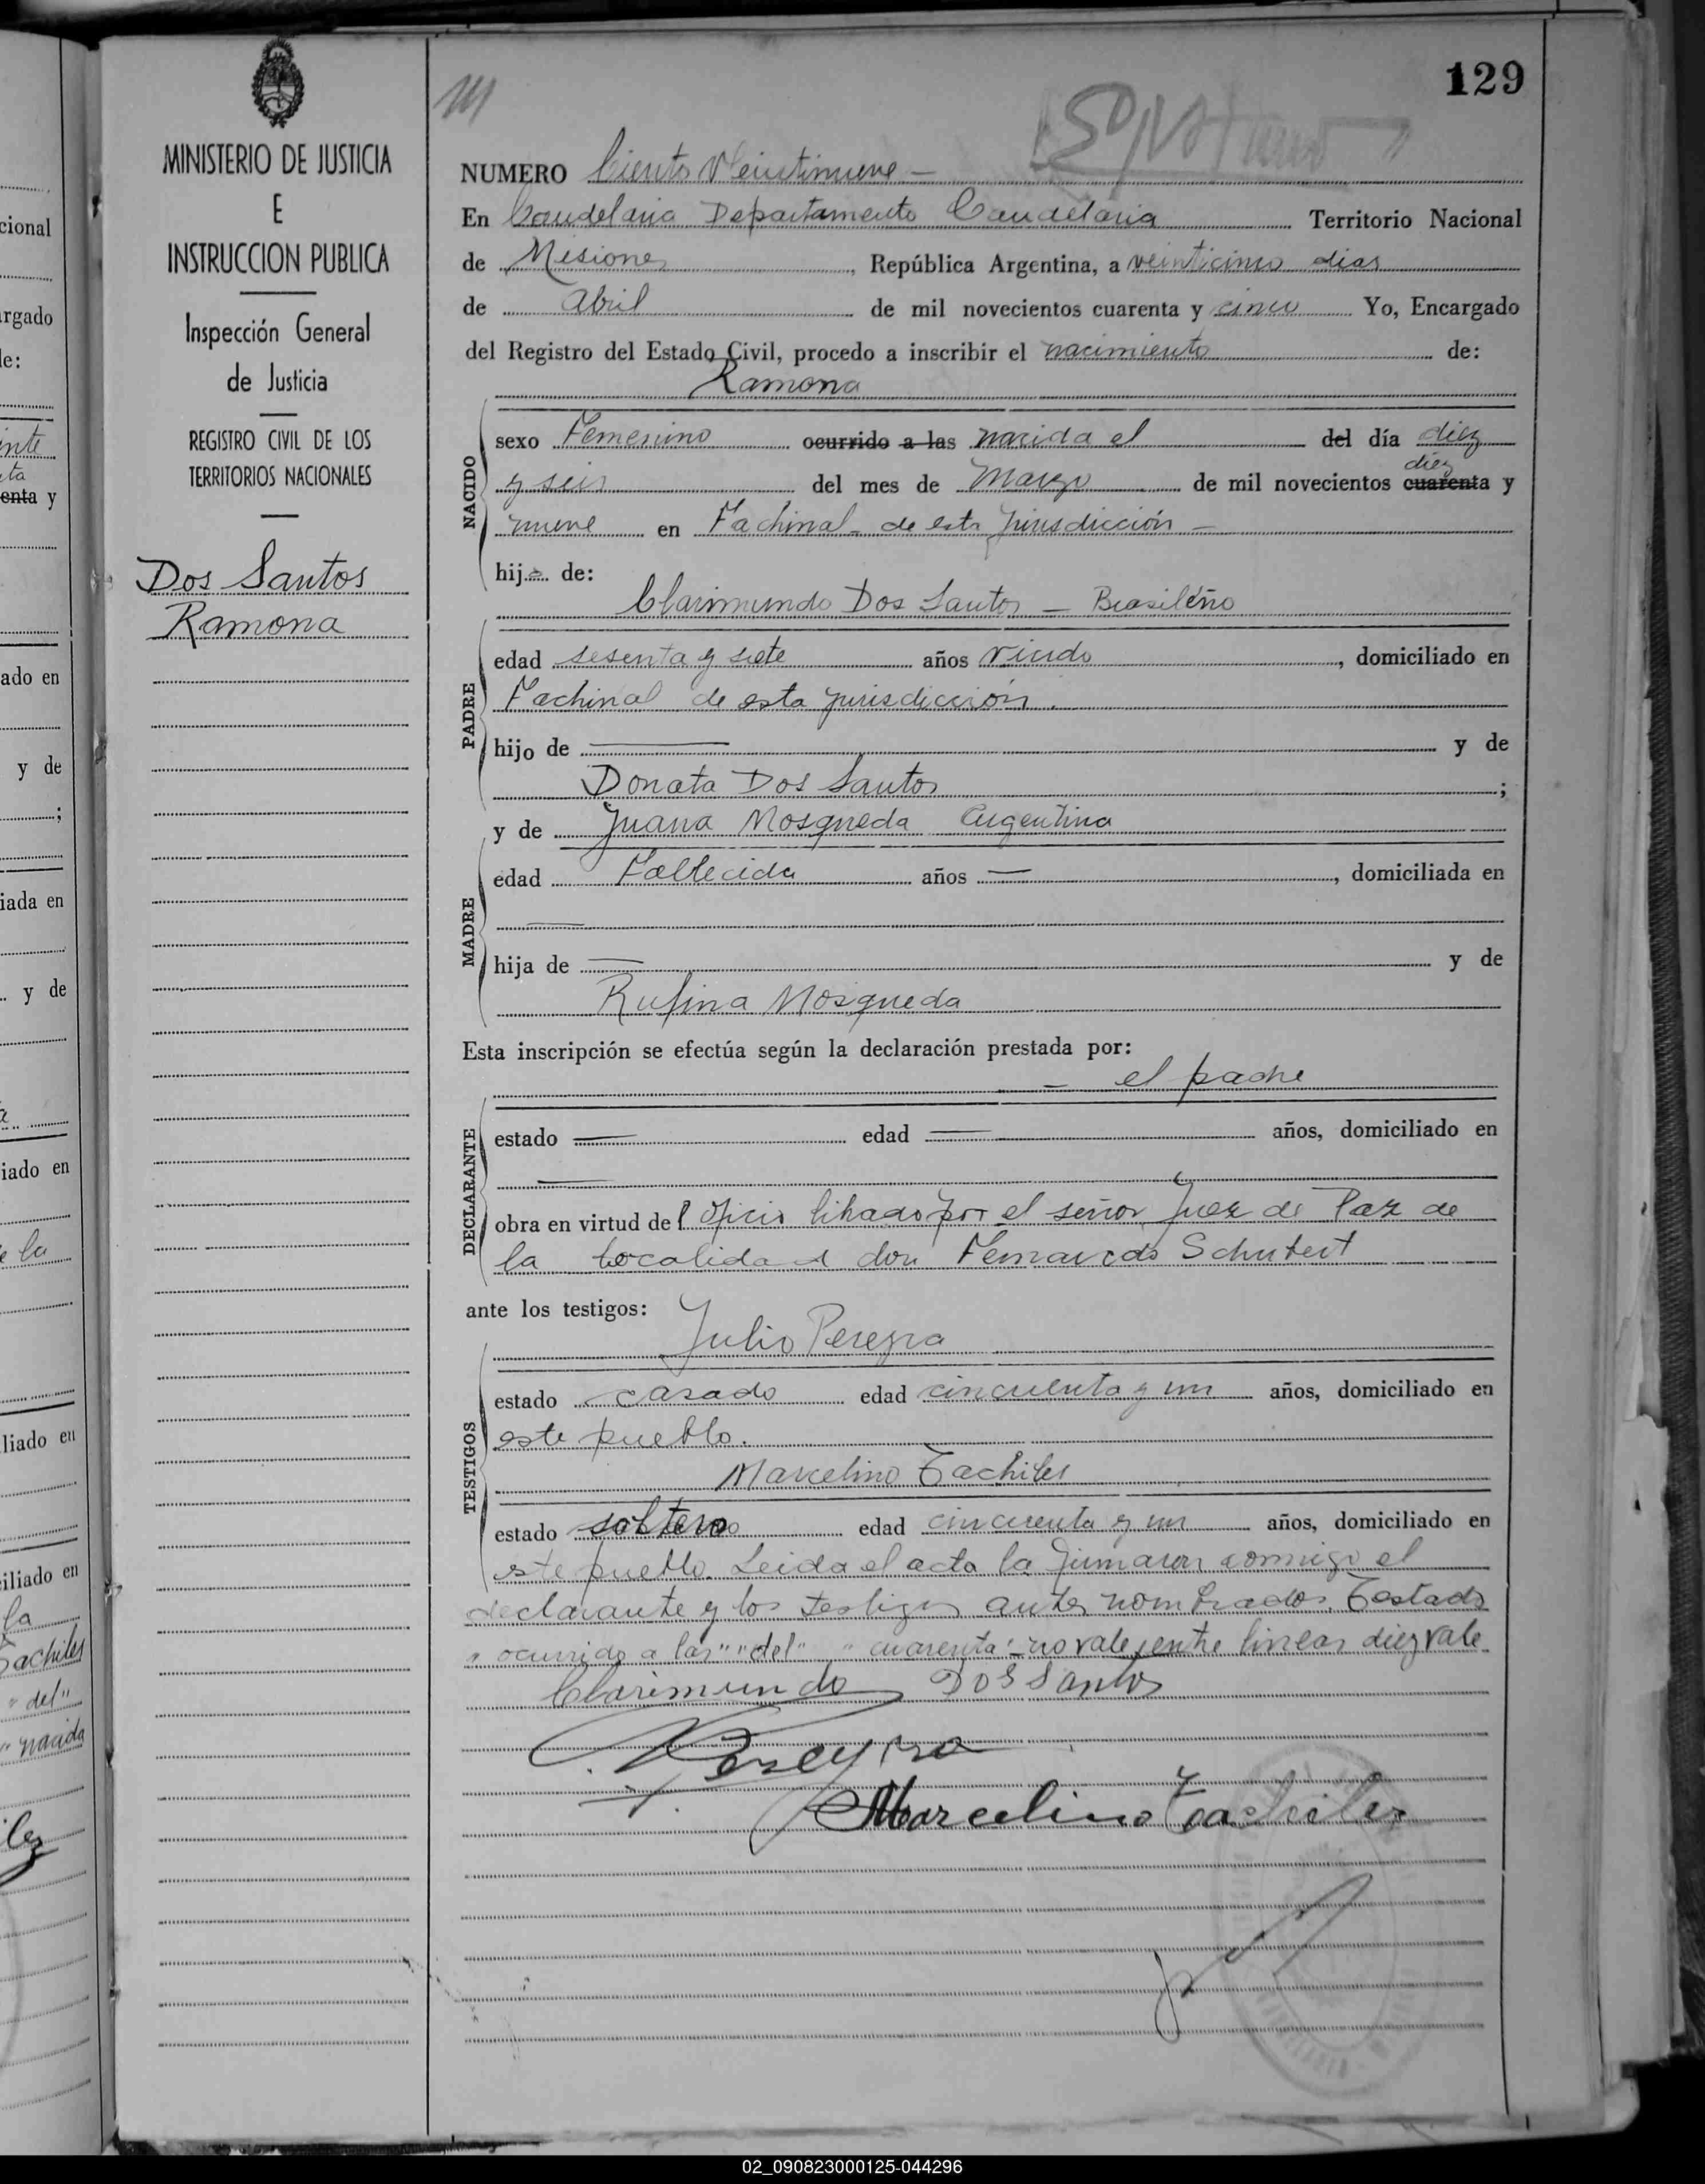 129
MINISTERIO DE JUSTICIA
E
INSTRUCCION PUBLICA
Inspección General
de Justicia
REGISTRO CIVIL DE LOS
TERRITORIOS NACIONALES
Dos Santos
Ramona
NUMERO Ciento Veintinueve —
En Candelaria Departamento Candelaria Territorio Nacional
de Misiones, República Argentina, a veinticinco dias
de Abril de mil novecientos cuarenta y cinco Yo, Encargado
del Registro del Estado Civil, procedo a inscribir el nacimiento de:
Ramona
NACIDO
sexo Femenino ocurrido a las nacida el del día diez
diez
y seis del mes de Marzo de mil novecientos cuarenta y
nueve en Fachinal de esta jurisdicción —
hija de:
Clarimundo Dos Santos — Brasileño
PADRE
edad sesenta y siete años viudo, domiciliado en
Fachinal de esta jurisdicción.
hijo de — y de
Donata Dos Santos;
y de Juana Mosqueda Argentina
MADRE
edad Fallecida años —, domiciliada en
—
hija de — y de
Rufina Mosqueda
Esta inscripción se efectúa según la declaración prestada por:
— el padre
DECLARANTE
estado — edad — años, domiciliado en
—
obra en virtud del Oficio librado por el señor Juez de Paz de
la localidad don Schubert
ante los testigos:
Julio Pereyra
TESTIGOS
estado casado edad cincuenta y un años, domiciliado en
este pueblo.
Marcelino Tachiles
estado soltero edad cincuenta y un años, domiciliado en
este pueblo. Leida el acta la firmaron conmigo el
declarante y los testigos antes nombrados. Testado
"ocurrido a las" "del" "cuarenta": no vale, entre lineas diez vale
Clarimundo Dos Santos
Pereyra
Marcelino Tachiles
cional
argado
de:
inte
enta y
ado en
y de
;
iada en
y de
iado en
e la
liado en
iliado en
la
Tachiles
"del"
" nacida
02_090823000125-044296